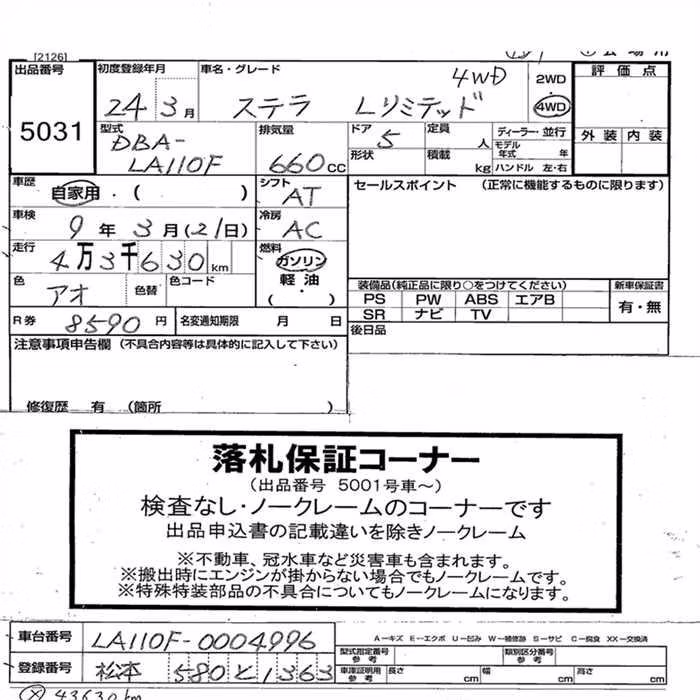 [2126]
出品番号 初度登録年月 車名・グレード 評価点
5031 24 3月 ステラ Lリミテッド 4WD 2WD 4WD 外装 内装
型式 排気量 ドア 定員 人 ディーラー・並行
DBA-LA110F 660cc 5 形状 積載 kg モデル年式 年 ハンドル 左・右
車歴 自家用・( ) シフト AT セールスポイント (正常に機能するものに限ります)
車検 9年3月(21日) 冷房 AC
走行 4万3千630km 燃料 ガソリン 軽油 ( )
色 アオ 色替 色コード 装備品(純正品に限り○をつけてください) 新車保証書
PS PW ABS エアB 有・無
SR ナビ TV
R券 8590円 名変通知期限 月 日 後日品
注意事項申告欄 (不具合内容等は具体的に記入して下さい)
修復歴 有 (箇所 )
落札保証コーナー
(出品番号 5001号車~)
検査なし・ノークレームのコーナーです
出品申込書の記載違いを除きノークレーム
※不動車、冠水車など災害車も含まれます。
※搬出時にエンジンが掛からない場合でもノークレームです。
※特殊特装部品の不具合についてもノークレームになります。
A-キズ E-エクボ U-凹み W-補修跡 S-サビ C-腐食 XX-交換済
車台番号 LA110F-0004996 型式指定番号 参考 類別区分番号 参考
登録番号 松本 580 と 1363 車庫証明用 参考 長さ cm 幅 cm 高さ cm
43630km